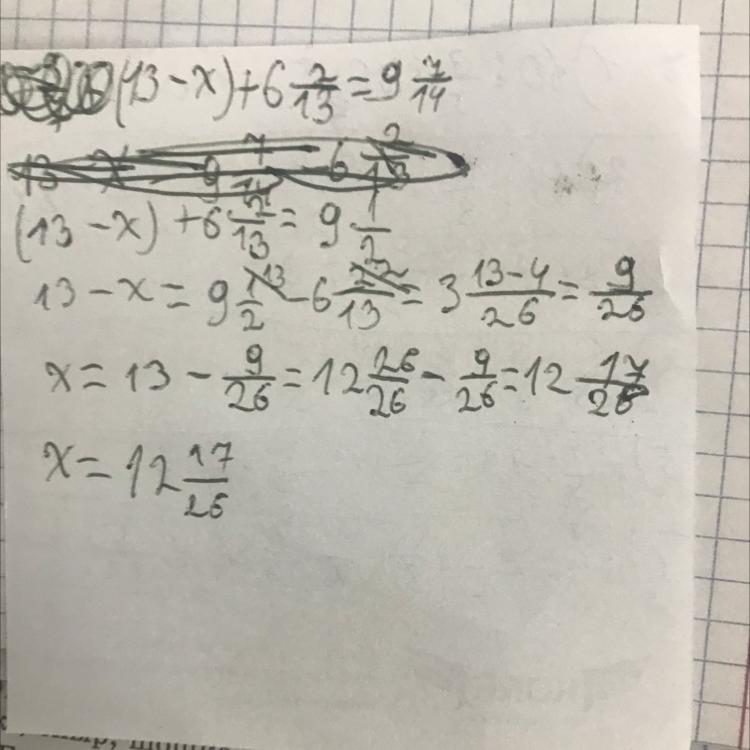 (13-x)+6 2/13=9 7/14
(13-x)+6 2/13=9 1/2
13-x=9 1/2 -6 2/13=3 13-4/26=9/26
x=13-9/26=12 26/26-9/26=12 17/26
x=12 17/26